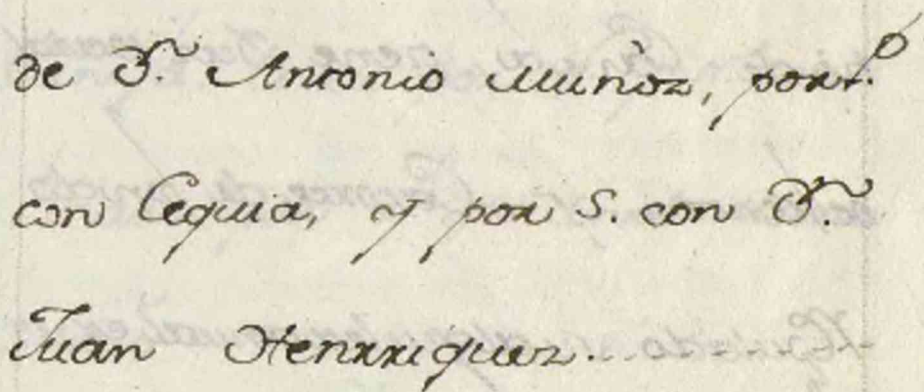 de D.ⁿ Antonio Muñoz, por P.
con Cequia, y por S. con D.ⁿ
Juan Henrriquez.